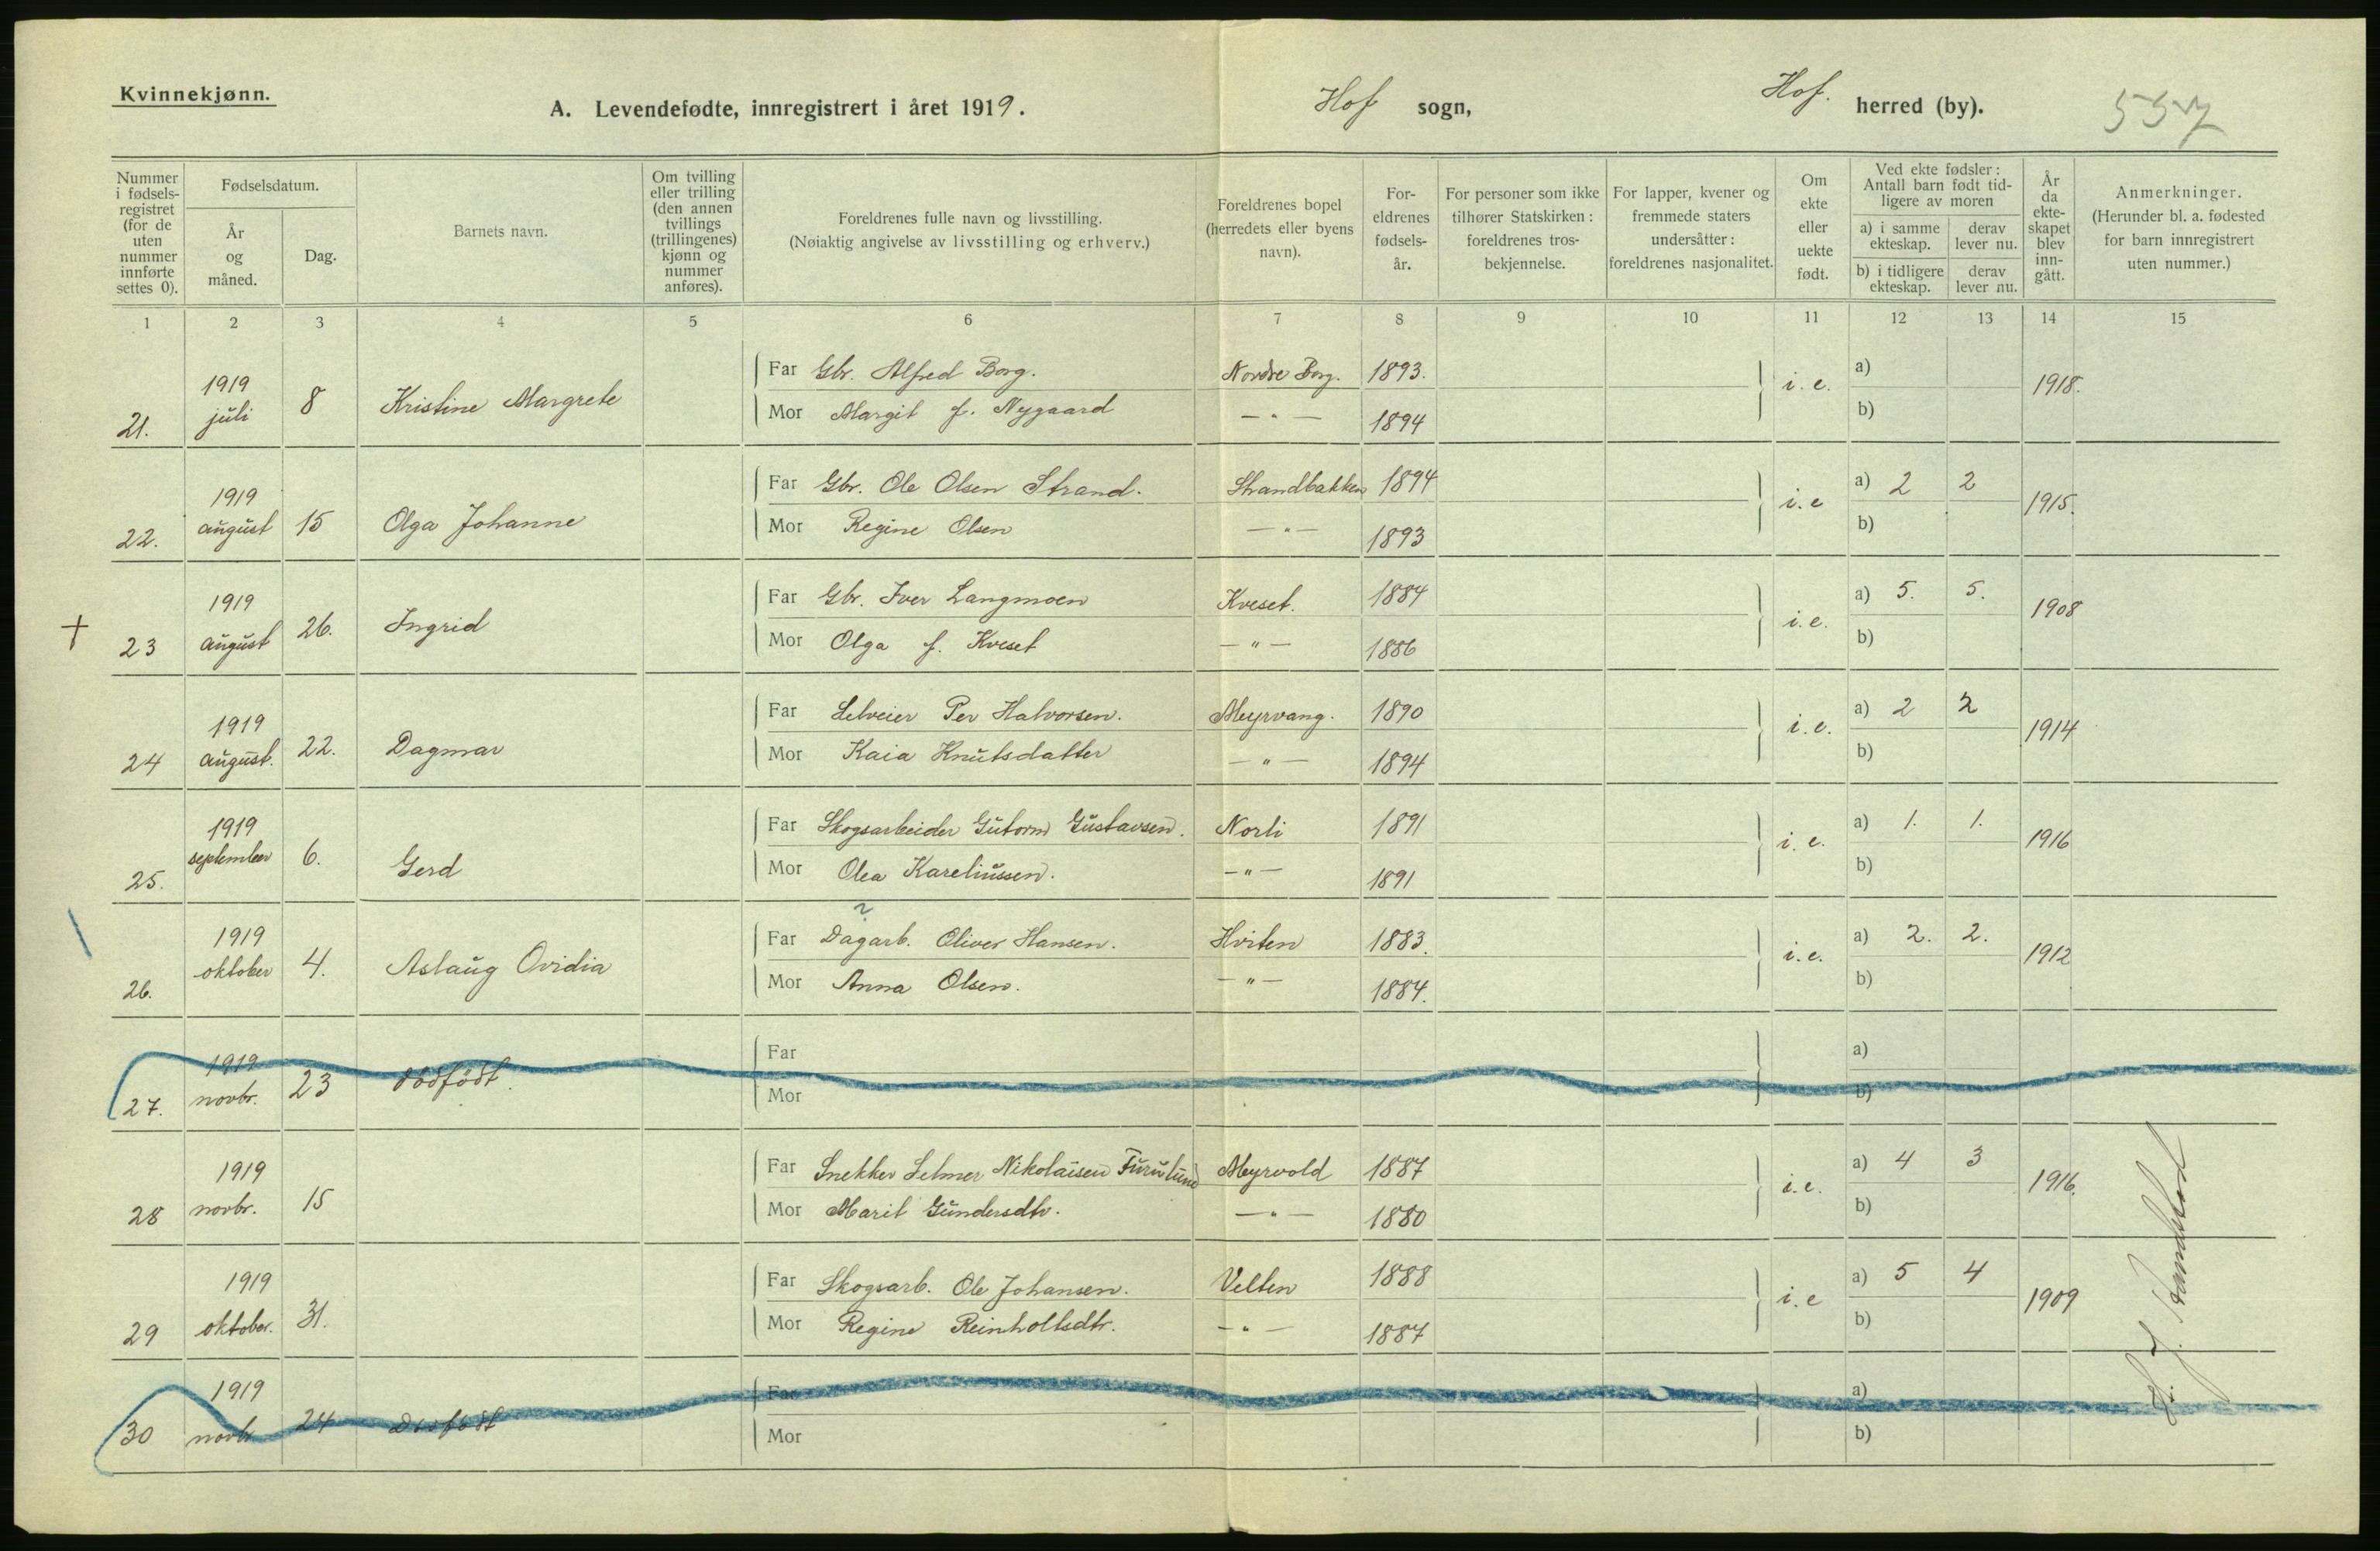 Kvinnekjønn.
A. Levendefødte, innregistrert i året 1919.
Hof sogn,
Hof. herred (by).
557
Nummer i fødsels-registret (for de uten nummer innførte settes 0).
Fødselsdatum.
År og måned.
Dag.
Barnets navn.
Om tvilling eller trilling (den annen tvillings (trillingenes) kjønn og nummer anføres).
Foreldrenes fulle navn og livsstilling.
(Nøiaktig angivelse av livsstilling og erhverv.)
Foreldrenes bopel (herredets eller byens navn).
For-eldrenes fødsels-år.
For personer som ikke tilhører Statskirken: foreldrenes tros-bekjennelse.
For lapper, kvener og fremmede staters undersåtter: foreldrenes nasjonalitet.
Om ekte eller uekte født.
Ved ekte fødsler: Antall barn født tid-ligere av moren
a) i samme ekteskap.
derav lever nu.
b) i tidligere ekteskap.
derav lever nu.
År da ekte-skapet blev inn-gått.
Anmerkninger.
(Herunder bl. a. fødested for barn innregistrert uten nummer.)
1 2 3 4 5 6 7 8 9 10 11 12 13 14 15
21. 1919 juli 8 Kristine Margrete
Far Gbr. Alfred Borg. Nordre Borg. 1893. i. e. a) 1918.
Mor Margit f. Nygaard — " — 1894 b)
22. 1919 august 15 Olga Johanne
Far Gbr. Ole Olsen Strand. Strandbakken 1894 i. e a) 2 2 1915.
Mor Regine Olsen — " — 1893 b)
+ 23 1919 august 26. Ingrid
Far Gbr. Iver Langmoen Kveset. 1884 i. e. a) 5. 5. 1908
Mor Olga f. Kveset — " — 1886 b)
24 1919 august. 22. Dagmar
Far Selveier Per Halvorsen. Myrvang. 1890 i. e. a) 2 2 1914
Mor Kaia Knutsdatter — " — 1894 b)
25. 1919 september 6. Gerd
Far Skogsarbeider Gutorm Gustavsen. Norli 1891 i. e. a) 1. 1. 1916
Mor Olea Kareliussen. — " — 1891 b)
26. 1919 oktober 4. Aslaug Ovidia
?
Far Dagarb. Oliver Hansen. Hviten 1883. i. e. a) 2. 2. 1912
Mor Anna Olsen. — " — 1884. b)
27. 1919 novbr. 23 dödfödt.
Far a)
Mor b)
28 1919 novbr. 15
Far Snekker Selmer Nikolaisen Furulund Myrvold 1887 i. e. a) 4 3 1916.
Mor Marit Gundersdtr. — " — 1880 b)
29 1919 oktober. 31.
Far Skogsarb. Ole Johansen. Velten 1888 i. e a) 5 4 1909
Mor Regine Reinholtsdtr. — " — 1887 b)
30 1919 novbr 24 Dödfödt
Far a)
Mor b)